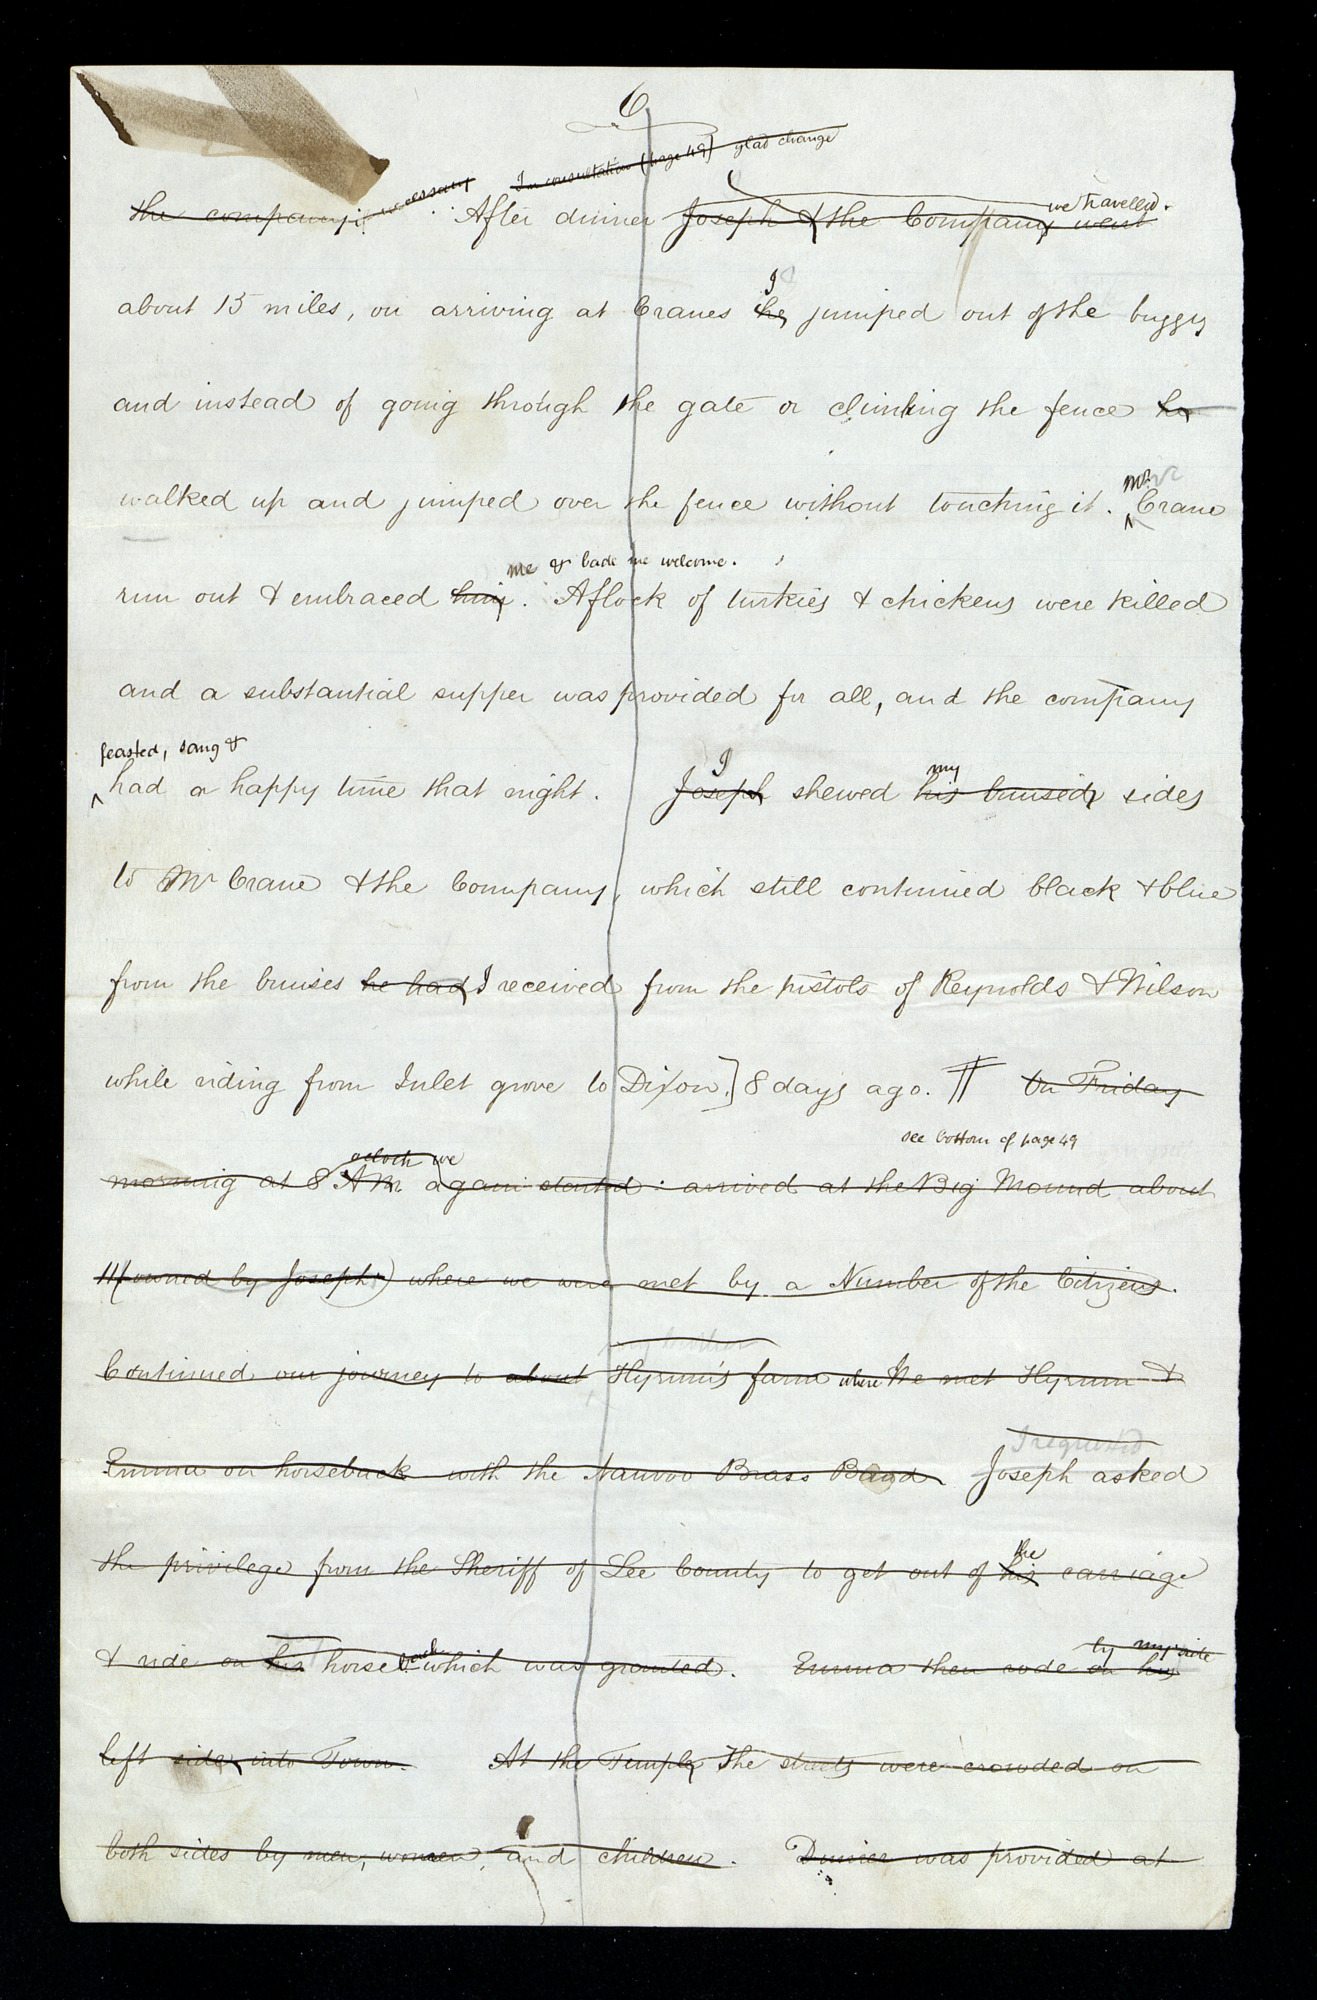 6
In consultation (page 49) glad change
the company necessary After dinner Joseph & the Company went we travelled.
about 15 miles, on arriving at Cranes he I jumped out of the buggy
and instead of going through the gate or climbing the fence he
walked up and jumped over the fence without touching it. Mr. Crane
me & bade me welcome.
run out & embraced him. A flock of turkies & chickens were killed
and a substantial supper was provided for all, and the company
feasted, sang &
had a happy time that night. Joseph I shewed his my bruised sides
to Mr Crane & the Company, which still continued black & blue
from the bruises he had I received from the pistols of Reynolds & Wilson
while riding from Inlet grove to Dixon.] 8 days ago. ¶ On Friday
see bottom of page 49
oclock we
morning at 8 A M. again started: arrived at the Big Mound about
11 (owned by Joseph) where we were met by a Number of the Citizens.
my brother
Continued our journey to about Hyrum's farm where We met Hyrum &
I requested
Emma on horseback with the Nauvoo Brass Band Joseph asked
the
the privilege from the Sheriff of Lee County to get out of his carriage
by my side
& ride on his horse back which was granted. Emma then rode on his
left side into Town. At the Temple The streets were crowded on
both sides by men, women, and children. Dinner was provided at